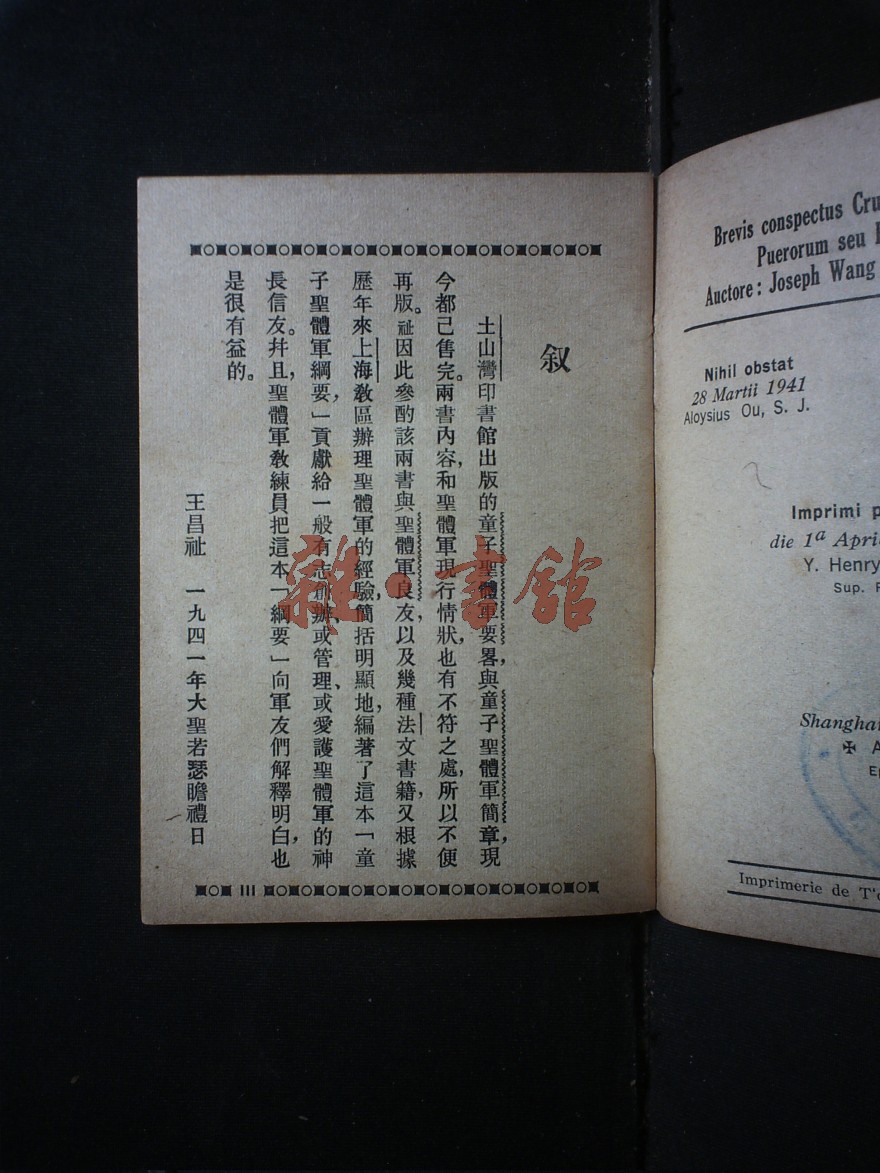 叙
土山灣印書館出版的童子聖體軍要畧，與童子聖體軍簡章，現
今都已售完。兩書內容，和聖體軍現行情狀，也有不符之處，所以不便
再版。祉因此參酌該兩書與聖體軍良友，以及幾種法文書籍，又根據
歷年來上海敎區辦理聖體軍的經驗，簡括明顯地，編著了這本「童
子聖體軍綱要，」貢獻給一般有志創辦、或管理、或愛護聖體軍的神
長信友。幷且，聖體軍敎練員把這本「綱要」向軍友們解釋明白，也
是很有益的。
王昌祉 一九四一年大聖若瑟瞻禮日
III
雜·書館
Brevis conspectus
Puerorum seu
Auctore: Joseph Wang
Nihil obstat
28 Martii 1941
Aloysius Ou, S. J.
Imprimi
die 1a
Y. Henry
Sup.
Shanghai
✠ A
Imprimerie de